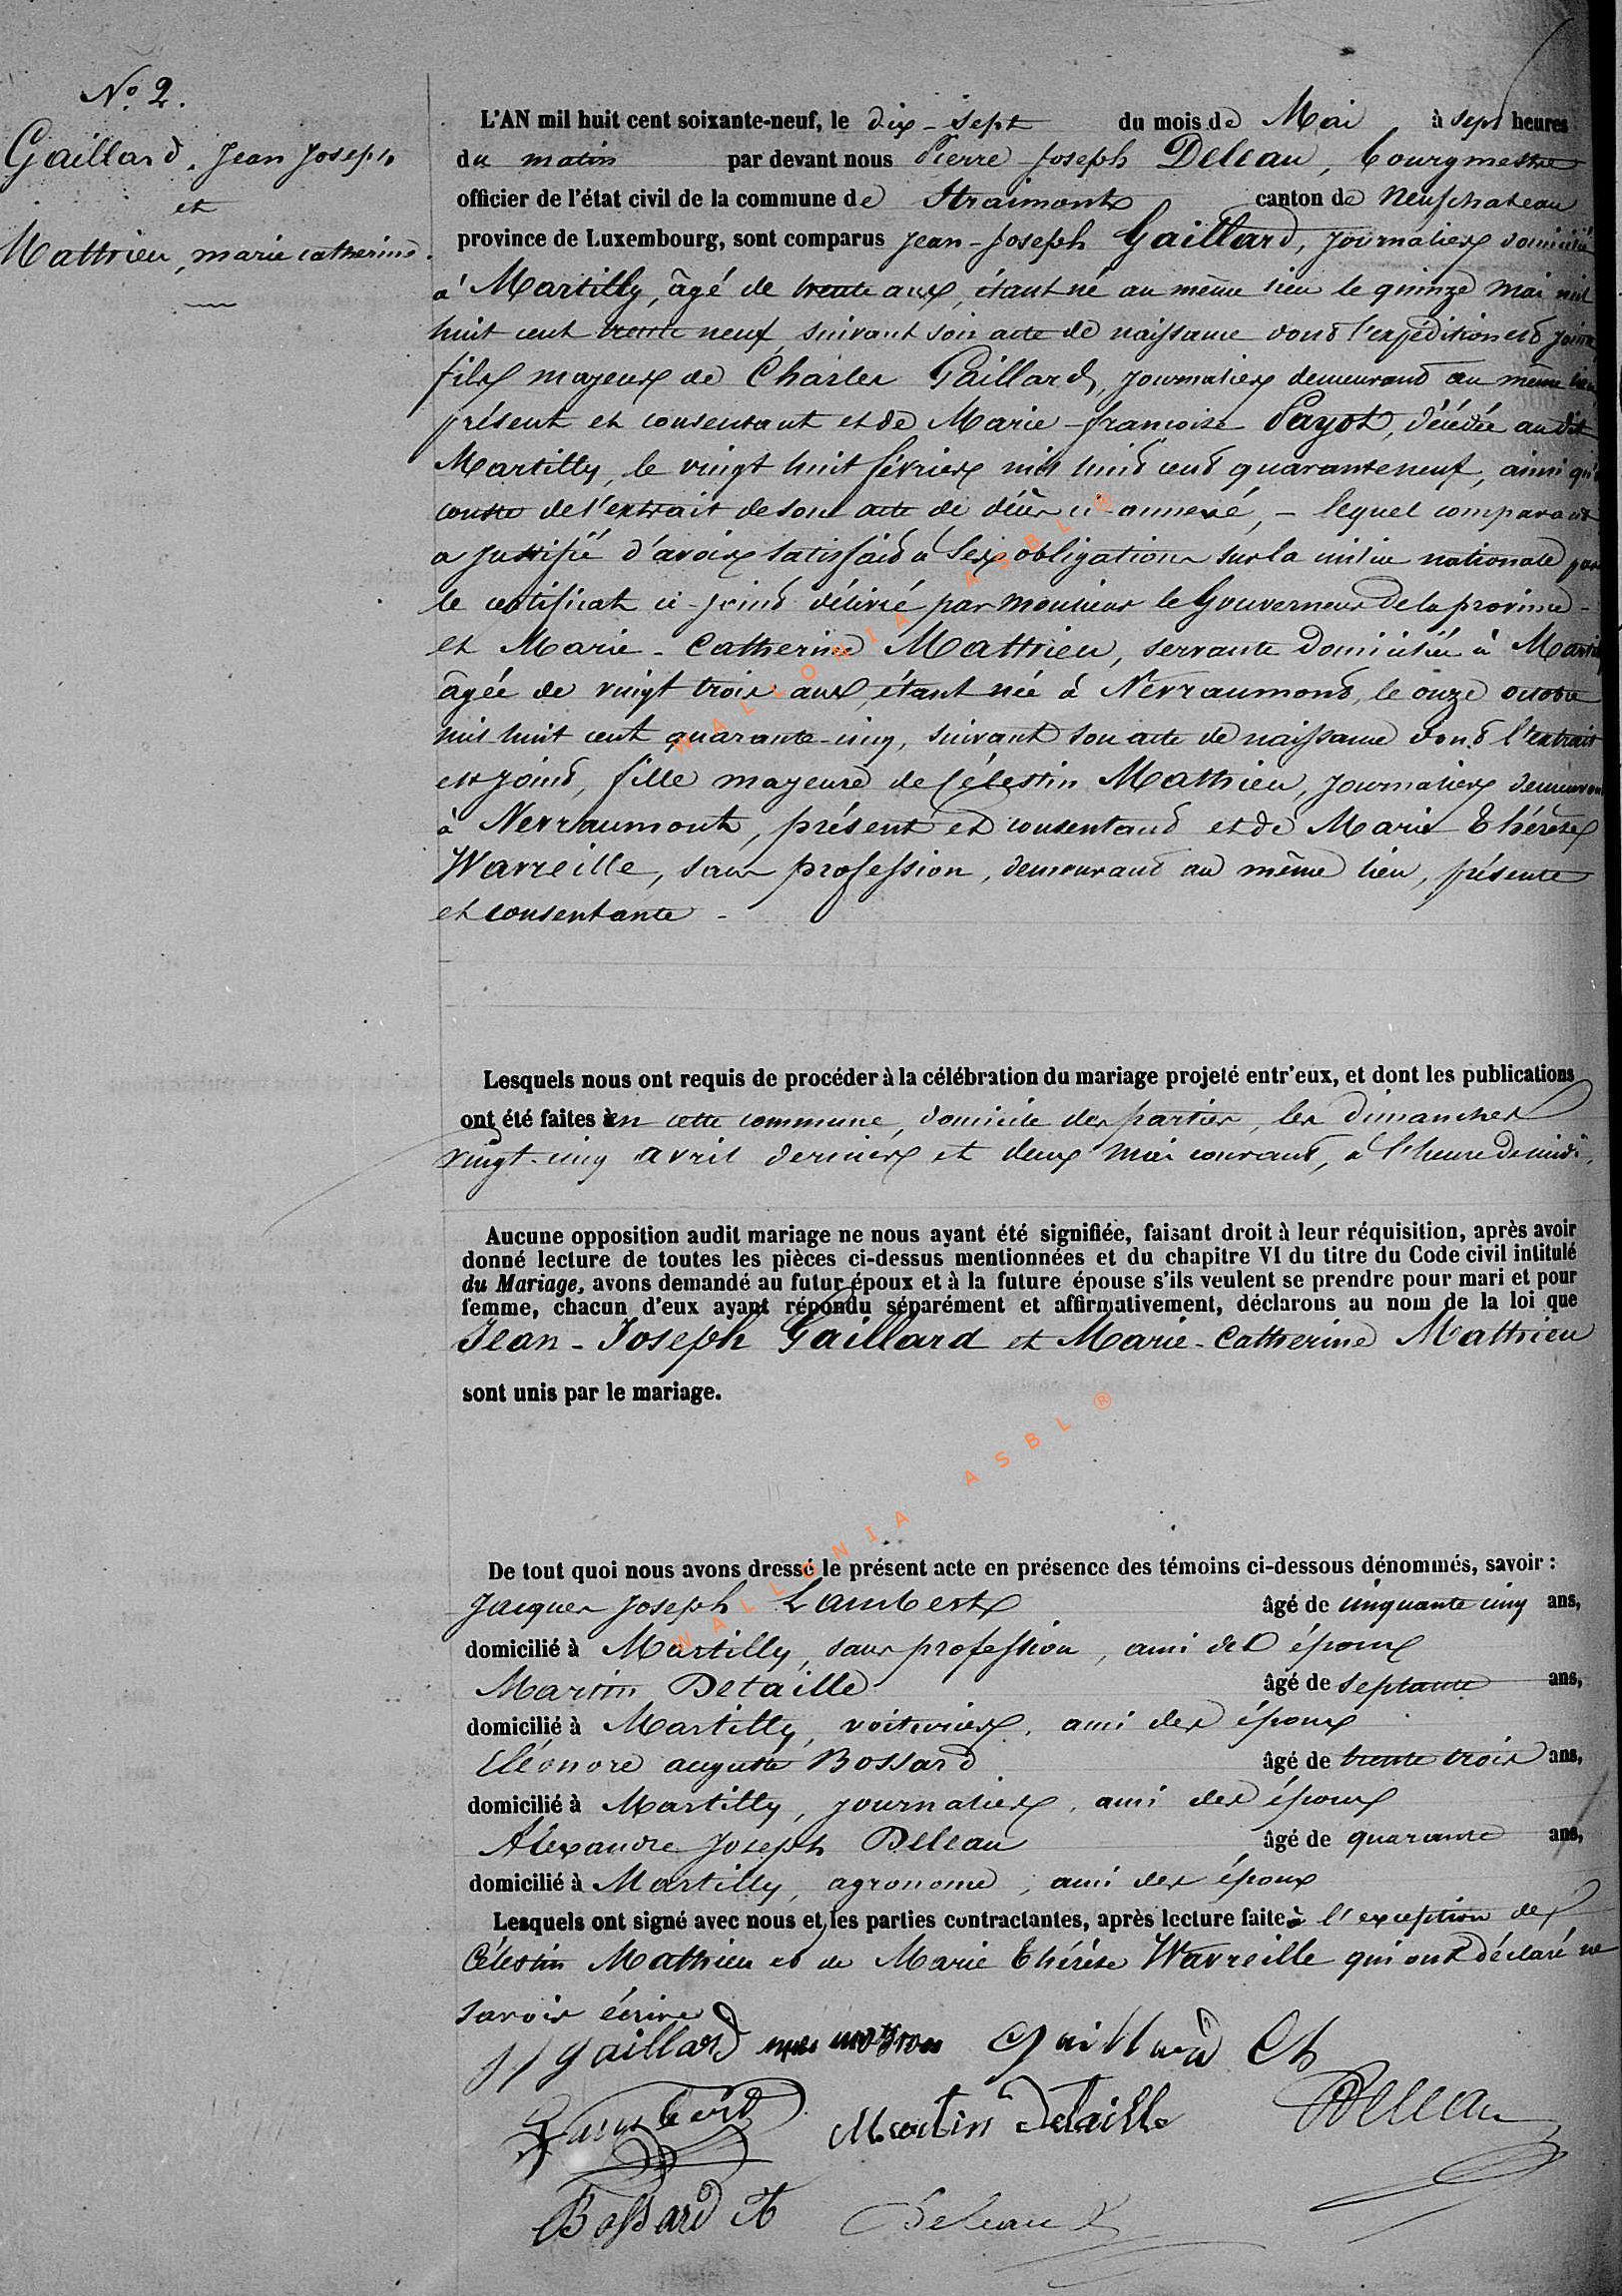 N° 2.
Gaillard, Jean Joseph
et
Mathieu, marie catherine.
L'AN mil huit cent soixante-neuf, le dix-sept du mois de Mai à sept heures
du matin par devant nous Pierre Joseph Deleau, bourgmestre
officier de l'état civil de la commune de Straimont canton de Neufchateau
province de Luxembourg, sont comparus Jean-Joseph Gaillard, journalier domicilié
à Martilly, âgé de trente ans, étant né au même lieu le quinze mai mil
huit cent trente neuf, suivant son acte de naissance dont l'expédition est jointe,
fils majeur de Charles Gaillard, journalier demeurant au même lieu
présent et consentant et de Marie-françoise Payot, décédée au dit
Martilly, le vingt huit février mil huit cent quarante neuf, ainsi qu'il
conste de l'extrait de son acte de décès ci-annexé, - lequel comparant
a justifié d'avoir satisfait à ses obligations sur la milice nationale par
le certificat ci-joint délivré par monsieur le Gouverneur de la province -
et Marie-Catherine Mathieu, servante domiciliée à Martilly
âgée de vingt trois ans, étant née à Nevraumont, le onze octobre
mil huit cent quarante-cinq, suivant son acte de naissance dont l'extrait
est joint, fille majeure de Célestin Mathieu, journalier demeurant
à Nevraumont, présent et consentant et de Marie Thérèse
Wavreille, sans profession, demeurant au même lieu, présente
et consentante -
Lesquels nous ont requis de procéder à la célébration du mariage projeté entr'eux, et dont les publications
ont été faites en cette commune, domicile des parties, les dimanches
vingt-cinq avril dernier et deux mai courant, à l'heure de midi.
Aucune opposition audit mariage ne nous ayant été signifiée, faisant droit à leur réquisition, après avoir
donné lecture de toutes les pièces ci-dessus mentionnées et du chapitre VI du titre du Code civil intitulé
du Mariage, avons demandé au futur époux et à la future épouse s'ils veulent se prendre pour mari et pour
femme, chacun d'eux ayant répondu séparément et affirmativement, déclarons au nom de la loi que
Jean-Joseph Gaillard et Marie-Catherine Mathieu
sont unis par le mariage.
De tout quoi nous avons dressé le présent acte en présence des témoins ci-dessous dénommés, savoir :
Jacques Joseph Lambert âgé de cinquante cinq ans,
domicilié à Martilly, sans profession, ami des époux
Martin Detaille âgé de septante ans,
domicilié à Martilly, voiturier, ami des époux
Eléonore auguste Bossard âgé de trente trois ans,
domicilié à Martilly, journalier, ami des époux
Alexandre Joseph Deleau âgé de quarante ans,
domicilié à Martilly, agronome, ami des époux
Lesquels ont signé avec nous et les parties contractantes, après lecture faite à l'exception de
Célestin Mathieu et de Marie Thérèse Wavreille qui ont déclaré ne
savoir écrire
JJ Gaillard Gaillard Ch
Lambert Martin Detaille Deleau
Bossard A Deleau
WALLONIA ASBL ®
WALLONIA ASBL ®